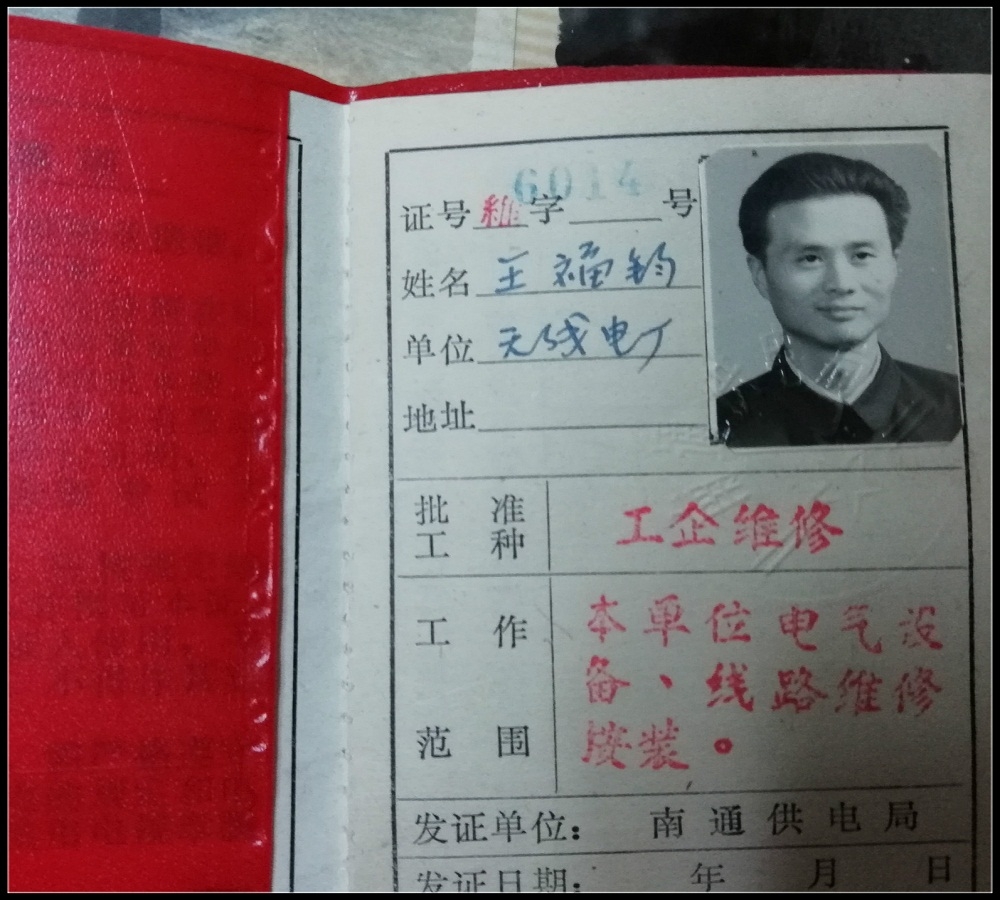 6014
证号 维 字 号
姓名 王福钧
单位 无线电厂
地址
批准
工种
工企维修
工作
范围
本单位电气设
备、线路维修
安装。
发证单位： 南通供电局
发证日期： 年 月 日